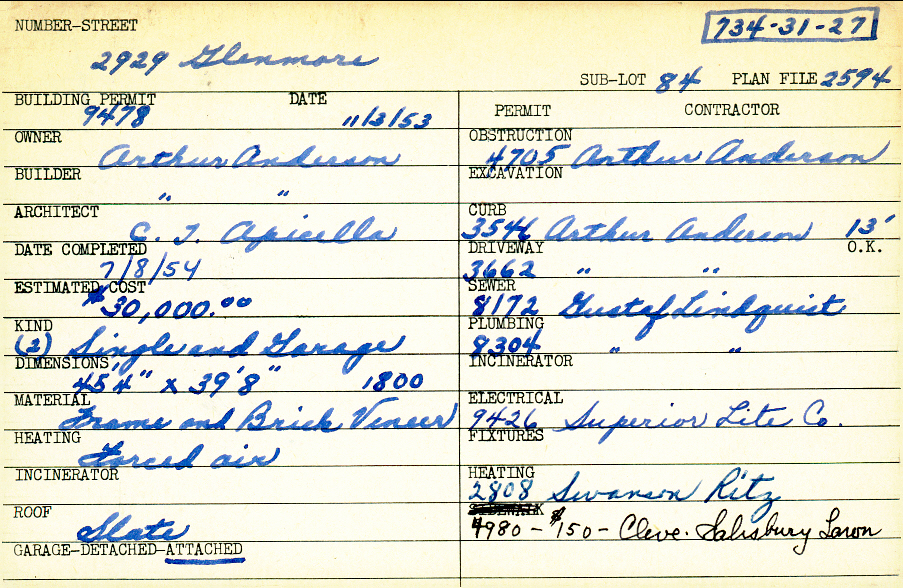 NUMBER-STREET
734-31-27
2929 Glenmore
SUB-LOT 84 PLAN FILE 2594
BUILDING PERMIT DATE
9478 11/3/53
OWNER
Arthur Anderson
BUILDER
" "
ARCHITECT
C. J. Apicella
DATE COMPLETED
7/8/54
ESTIMATED COST
$30,000.00
KIND
(2) Single and Garage
DIMENSIONS
45'4" x 39'8" 1800
MATERIAL
Frame and Brick Veneer
HEATING
Forced air
INCINERATOR
ROOF
Slate
GARAGE-DETACHED-ATTACHED
PERMIT CONTRACTOR
OBSTRUCTION
4705 Arthur Anderson
EXCAVATION
CURB
3546 Arthur Anderson 13'
DRIVEWAY O.K.
3662 " "
SEWER
8172 Gustaf Lindquist
PLUMBING
8304 " "
INCINERATOR
ELECTRICAL
9426 Superior Lite Co.
FIXTURES
HEATING
2808 Swanson Ritz
SIDEWALK
4980 - $150 - Cleve. Salisbury